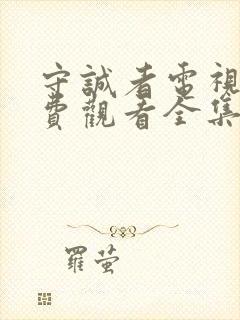 守誠者電視
費觀看全集
羅萤